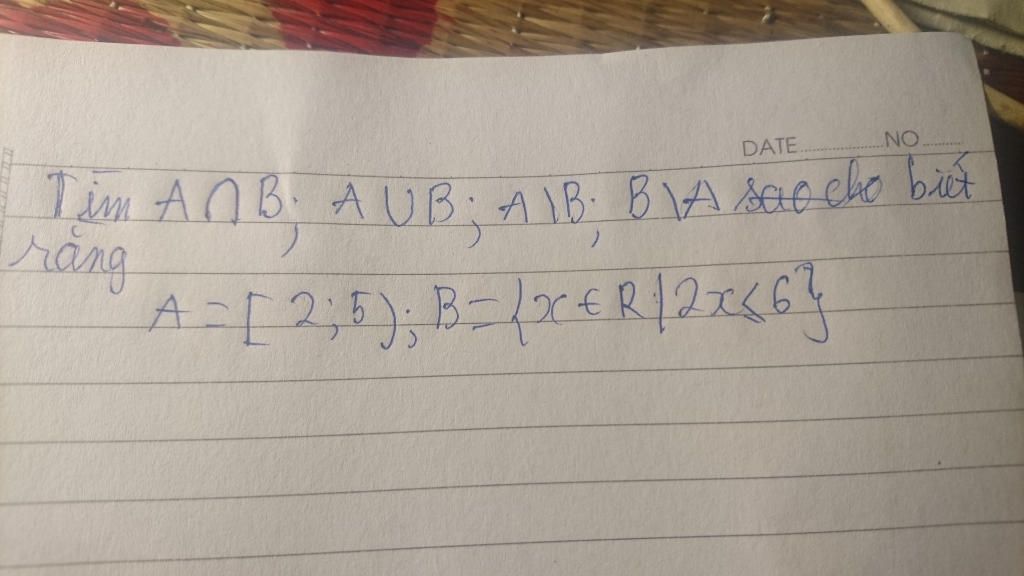 DATE..................NO.........
Tìm A∩B; A∪B; A\B; B\A ~~sao~~ cho biết
rằng
A = [2;5); B = {x ∈ R | 2x ≤ 6}